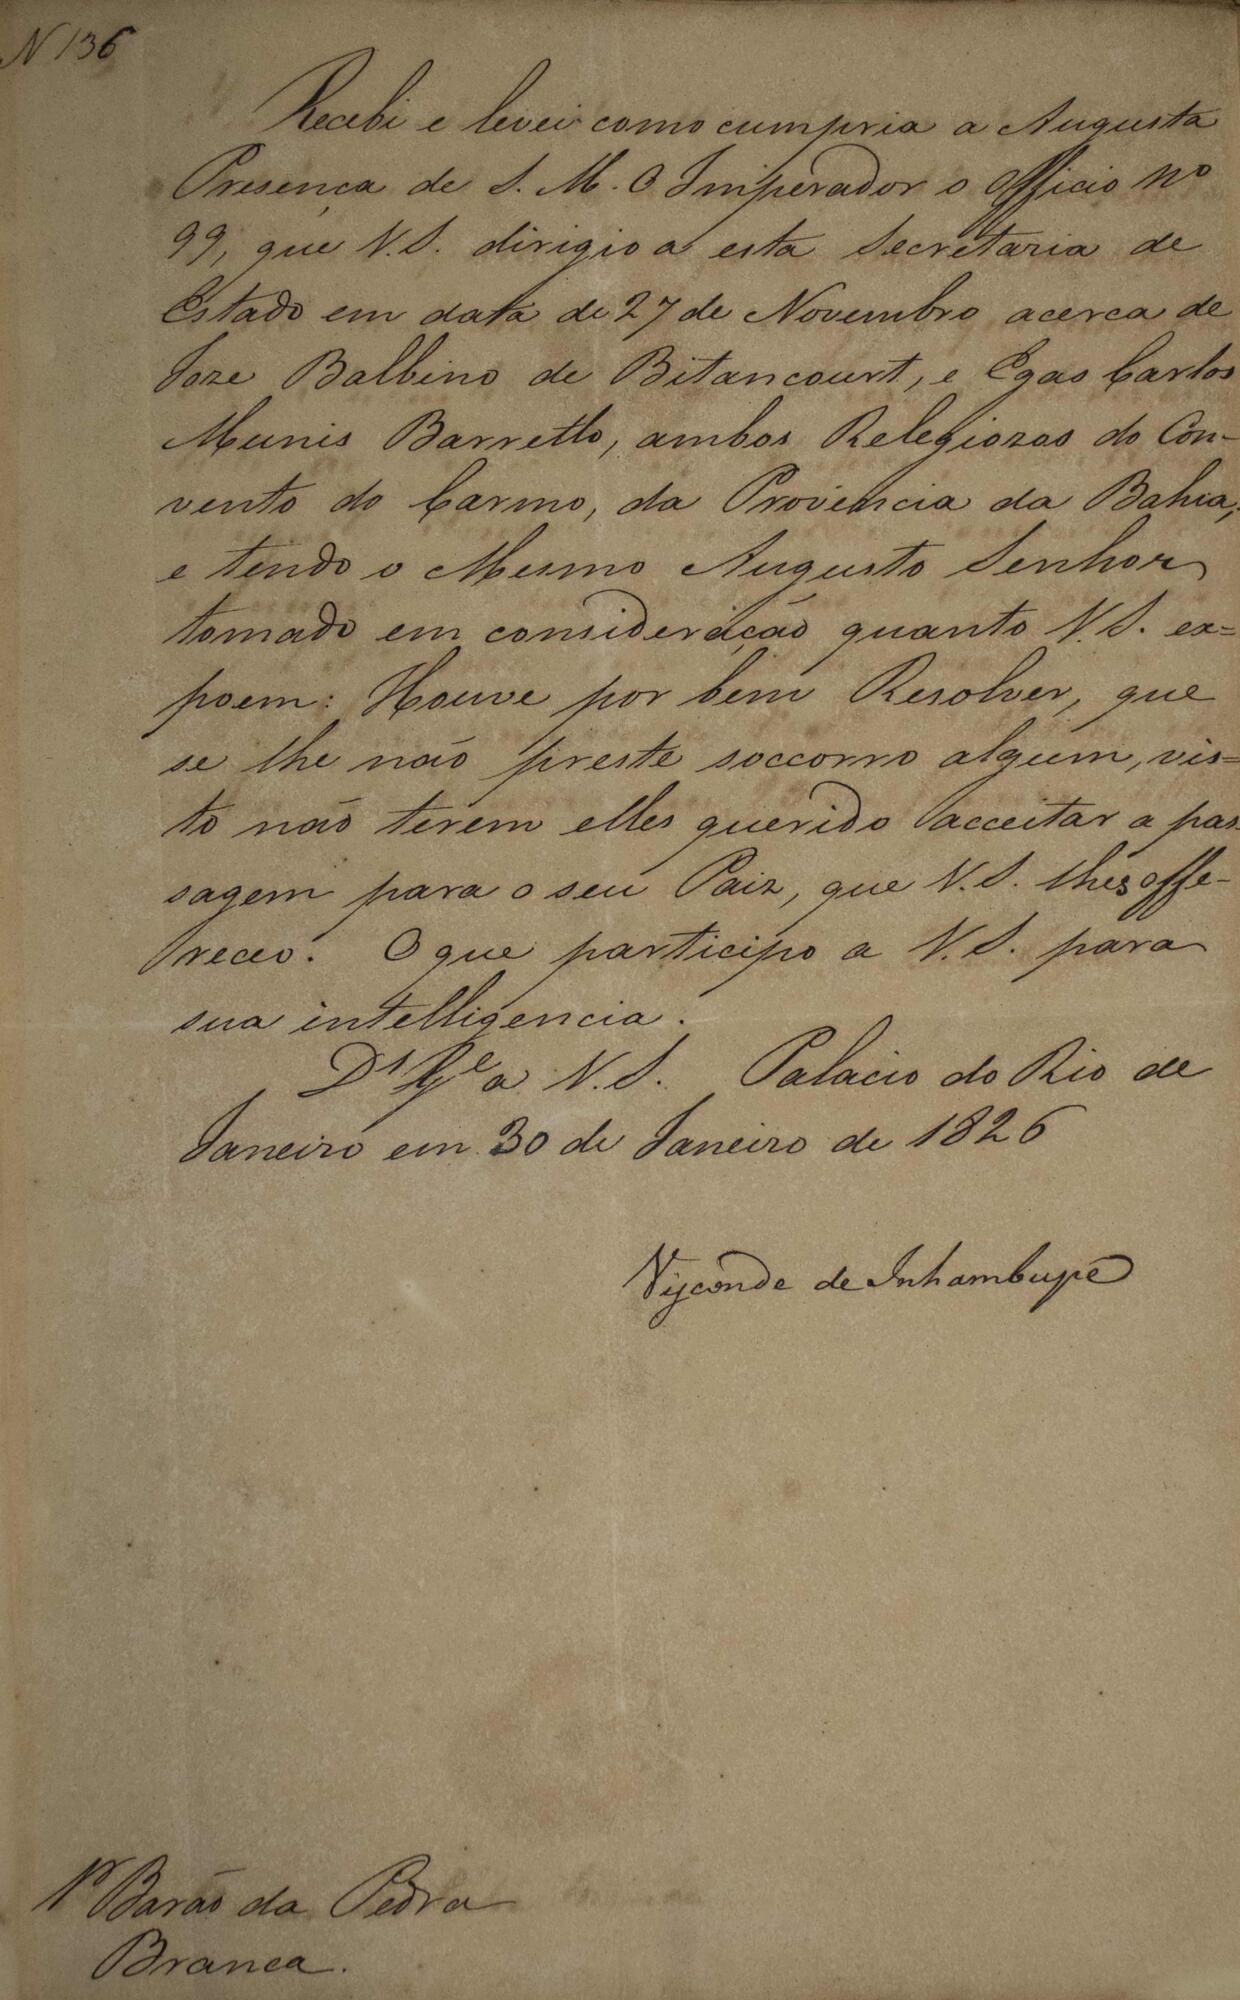 N 136
Recebi e levei como cumpria a Augusta
Presença de S. M. O Imperador o Officio nº
99, que V.S. dirigio a esta Secretaria de
Estado em data de 27 de Novembro acerca de
Joze Balbino de Bitancourt, e Egas Carlos
Munis Barretto, ambos Relegiozos do Con-
vento do Carmo, da Provencia da Bahia,
e tendo o Mesmo Augusto Senhor
tomado em consideração quanto V.S. ex=
poem: Houve por bem Resolver, que
se lhe não preste soccorro algum, vis=
to não terem elles querido acceitar a pas-
sagem para o seu Paiz, que V.S. lhes offe-
receo. O que participo a V.S. para
sua intelligencia.
Ds Ge a V.S. Palacio do Rio de
Janeiro em 30 de Janeiro de 1826
Visconde de Inhambupe
Barão da Pedra
Branca.